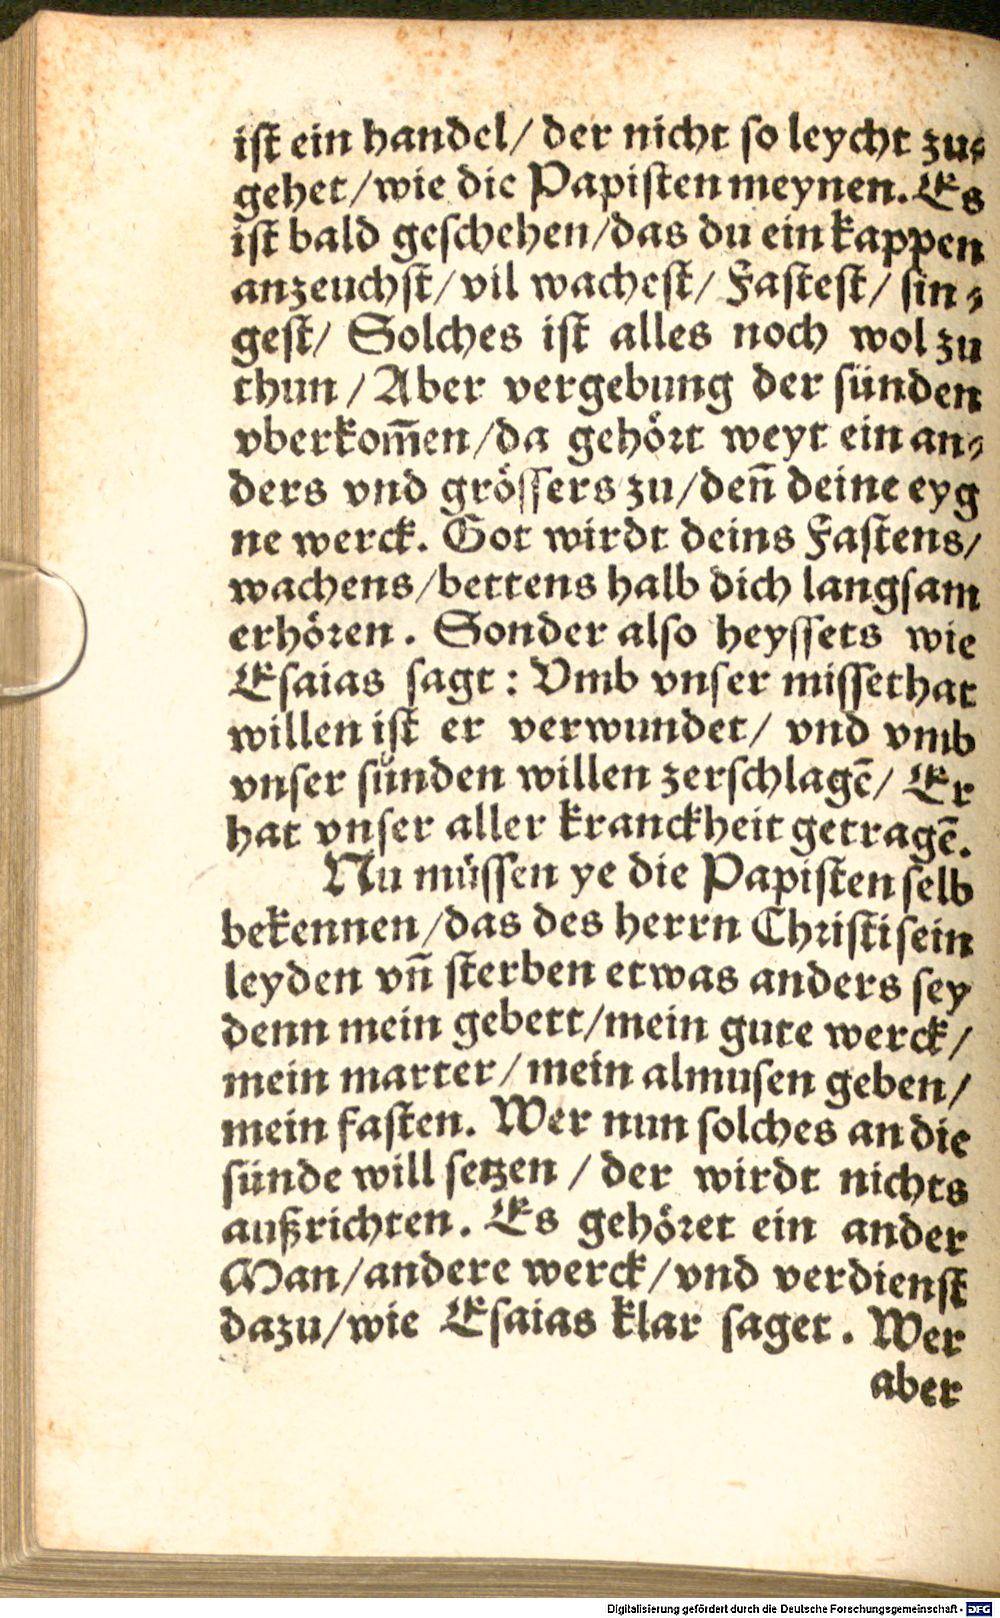 ist ein handel/ der nicht so leycht zu⸗
gehet/wie die Papisten meynen. Es
ist bald geschehen/das du ein kappen
anzeuchst/vil wachest/ Fastest/ sin⸗
gest/ Solches ist alles noch wol zu
thun / Aber vergebung der sünden
vberkom̅en/da gehört weyt ein an⸗
ders vnd grössers zu/den̅ deine eyg
ne werck. Got wirdt deins Fastens/
wachens/bettens halb dich langsam
erhören. Sonder also heyssets wie
Esaias sagt: Vmb vnser missethat
willen ist er verwundet/ vnd vmb
vnser sünden willen zerschlagē/ Er
hat vnser aller kranckheit getragē.
Nu müssen ye die Papisten selb
bekennen/das des herrn Christi sein
leyden vn̅ sterben etwas anders sey
denn mein gebett/mein gute werck/
mein marter/mein almusen geben/
mein fasten. Wer nun solches an die
sünde will setzen / der wirdt nichts
außrichten. Es gehöret ein ander
Man/andere werck/vnd verdienst
dazu/wie Esaias klar saget. Wer
aber
Digitalisierung gefördert durch die Deutsche Forschungsgemeinschaft - DFG